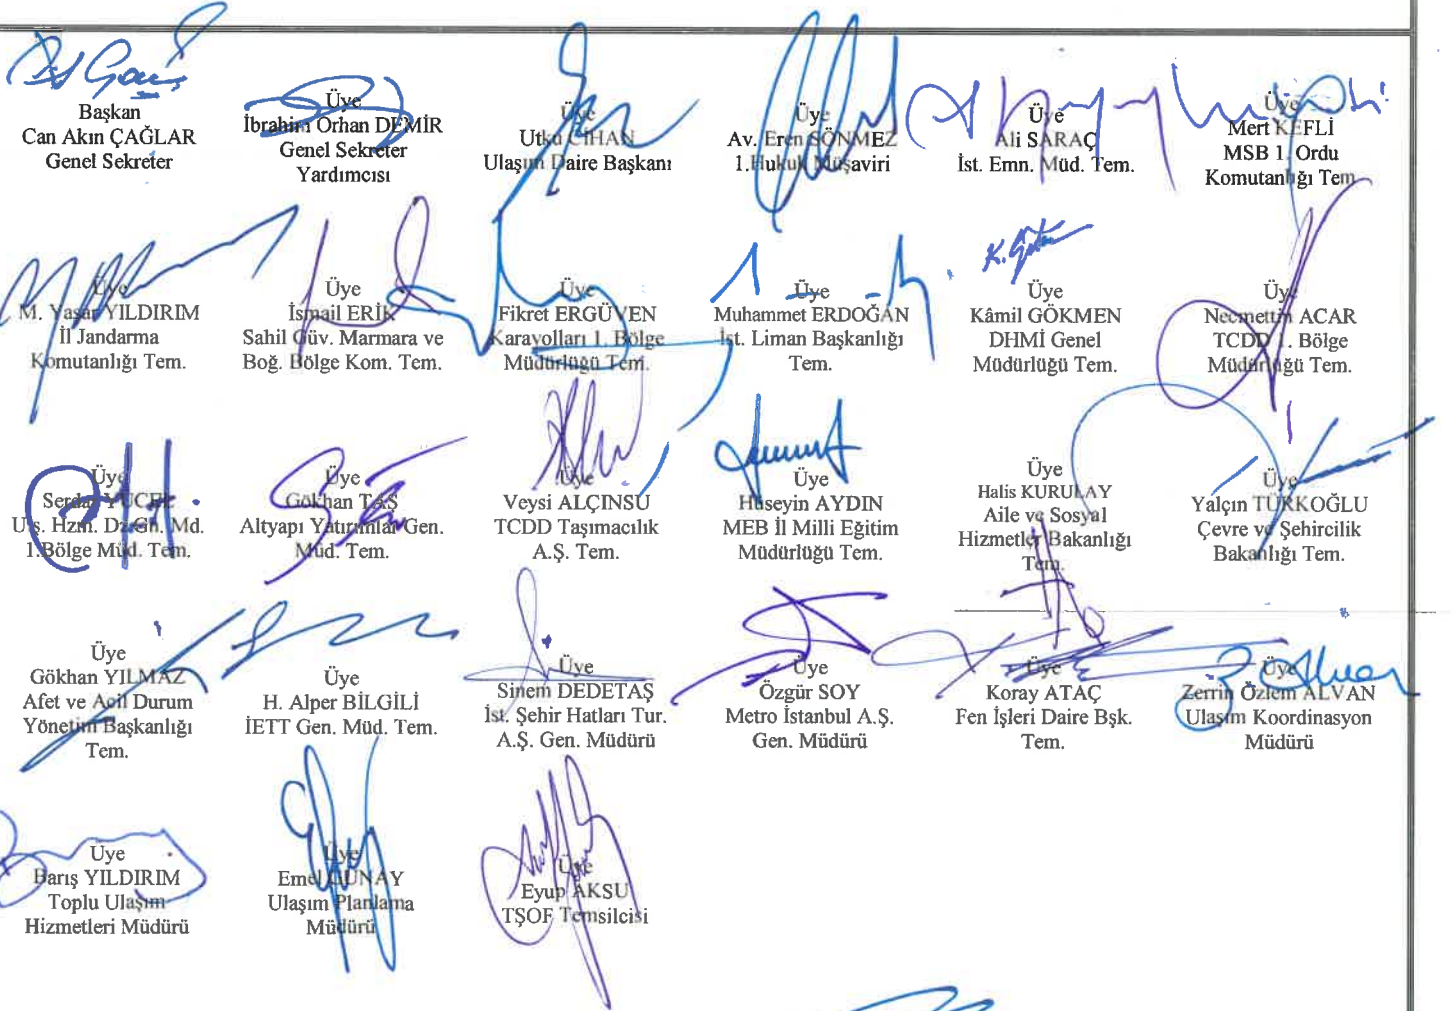 Başkan
Can Akın ÇAĞLAR
Genel Sekreter
Üye
İbrahim Orhan DEMİR
Genel Sekreter
Yardımcısı
Üye
Utku CİHAN
Ulaşım Daire Başkanı
Üye
Av. Eren SÖNMEZ
1.Hukuk Müşaviri
Üye
Ali SARAÇ
İst. Emn. Müd. Tem.
Üye
Mert KEFLİ
MSB 1. Ordu
Komutanlığı Tem
Üye
M. Yaşar YILDIRIM
İl Jandarma
Komutanlığı Tem.
Üye
İsmail ERİK
Sahil Güv. Marmara ve
Boğ. Bölge Kom. Tem.
Üye
Fikret ERGÜVEN
Karayolları 1. Bölge
Müdürlüğü Tem.
Üye
Muhammet ERDOĞAN
İst. Liman Başkanlığı
Tem.
K. Gökmen
Üye
Kâmil GÖKMEN
DHMİ Genel
Müdürlüğü Tem.
Üye
Necmettin ACAR
TCDD 1. Bölge
Müdürlüğü Tem.
Üye
Serdar YÜCEL
Hzm. Dz. Gn. Md.
1.Bölge Müd. Tem.
Üye
Gökhan TAŞ
Altyapı Yatırımlar Gen.
Müd. Tem.
Üye
Veysi ALÇINSU
TCDD Taşımacılık
A.Ş. Tem.
Üye
Hüseyin AYDIN
MEB İl Milli Eğitim
Müdürlüğü Tem.
Üye
Halis KURULAY
Aile ve Sosyal
Hizmetler Bakanlığı
Tem.
Üye
Yalçın TÜRKOĞLU
Çevre ve Şehircilik
Bakanlığı Tem.
Üye
Gökhan YILMAZ
Afet ve Acil Durum
Yönetim Başkanlığı
Tem.
Üye
H. Alper BİLGİLİ
İETT Gen. Müd. Tem.
Üye
Sinem DEDETAŞ
İst. Şehir Hatları Tur.
A.Ş. Gen. Müdürü
Üye
Özgür SOY
Metro İstanbul A.Ş.
Gen. Müdürü
Üye
Koray ATAÇ
Fen İşleri Daire Bşk.
Tem.
Üye
Zerrin Özlem ALVAN
Ulaşım Koordinasyon
Müdürü
Üye
Barış YILDIRIM
Toplu Ulaşım
Hizmetleri Müdürü
Üye
Emel GÜNAY
Ulaşım Planlama
Müdürü
Üye
Eyup AKSU
TŞOF Temsilcisi